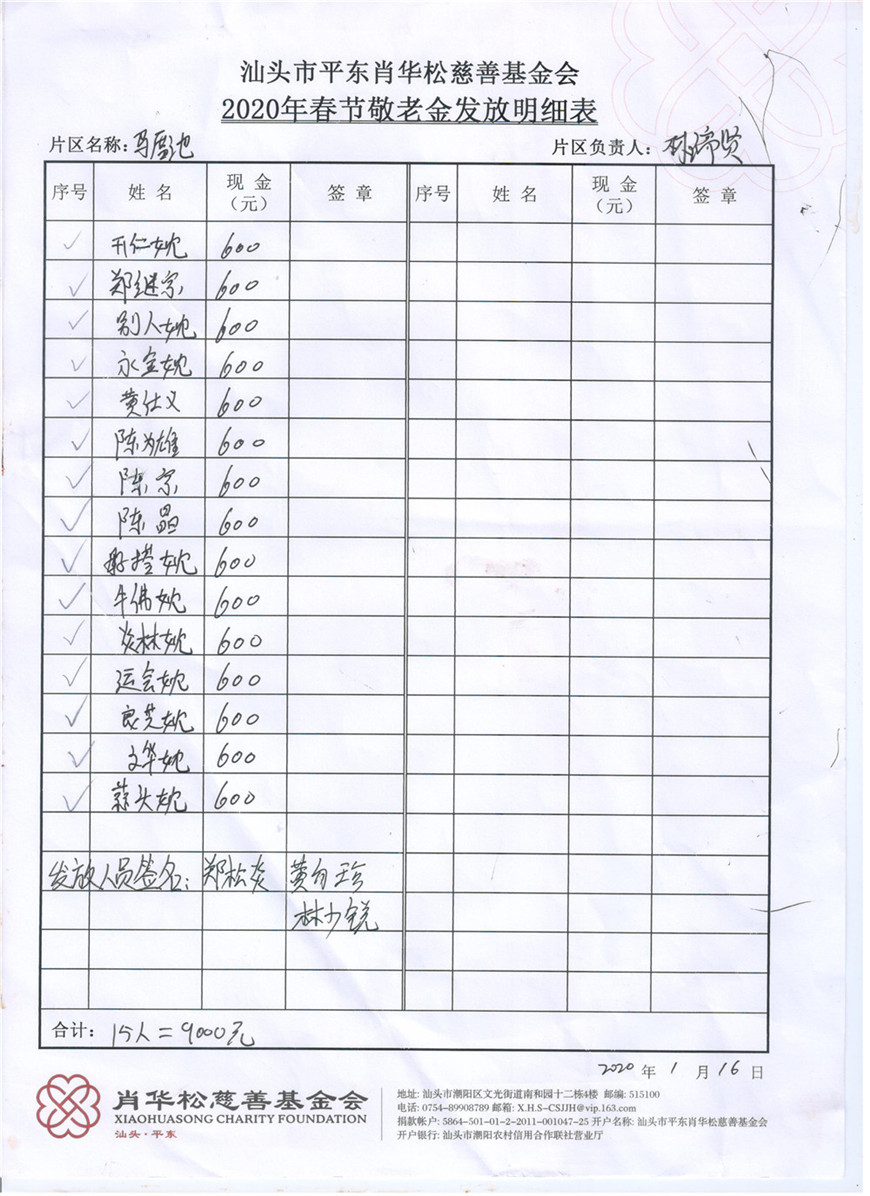 汕头市平东肖华松慈善基金会
2020年春节敬老金发放明细表
片区名称: 片区负责人:
序号 姓名 现金（元） 签章 序号 姓名 现金（元） 签章
600
郑继宗 600
别人 600
永金 600
黄仕义 600
陈为雄 600
陈宗 600
陈晶 600
600
牛佛 600
炎林 600
运会 600
良芝 600
文华 600
蒜头 600
发放人员签名: 郑松炎
林少锐
合计: 15人=9000元
2020年1月16日
肖华松慈善基金会
XIAOHUASONG CHARITY FOUNDATION
汕头·平东
地址: 汕头市潮阳区文光街道南和园十二栋4楼 邮编: 515100
电话: 0754-89908789 邮箱: X.H.S-CSJJH@vip.163.com
捐款帐户: 5864-501-01-2-2011-001047-25 开户名称: 汕头市平东肖华松慈善基金会
开户银行: 汕头市潮阳农村信用合作联社营业厅